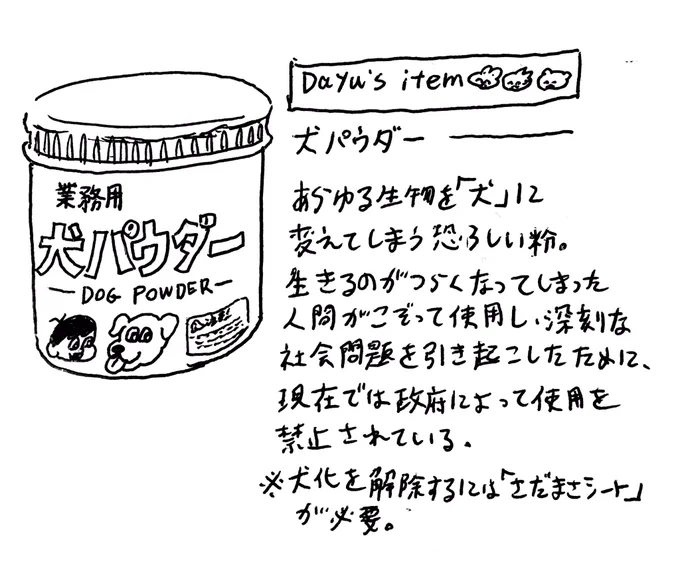 業務用
犬パウダー
—DOG POWDER—
Dayu's item
犬パウダー
あらゆる生物を「犬」に
変えてしまう恐ろしい粉。
生きるのがつらくなってしまった
人間がこぞって使用し、深刻な
社会問題を引き起こしたために、
現在では政府によって使用を
禁止されている。
※犬化を解除するには「さだまさシート」
が必要。